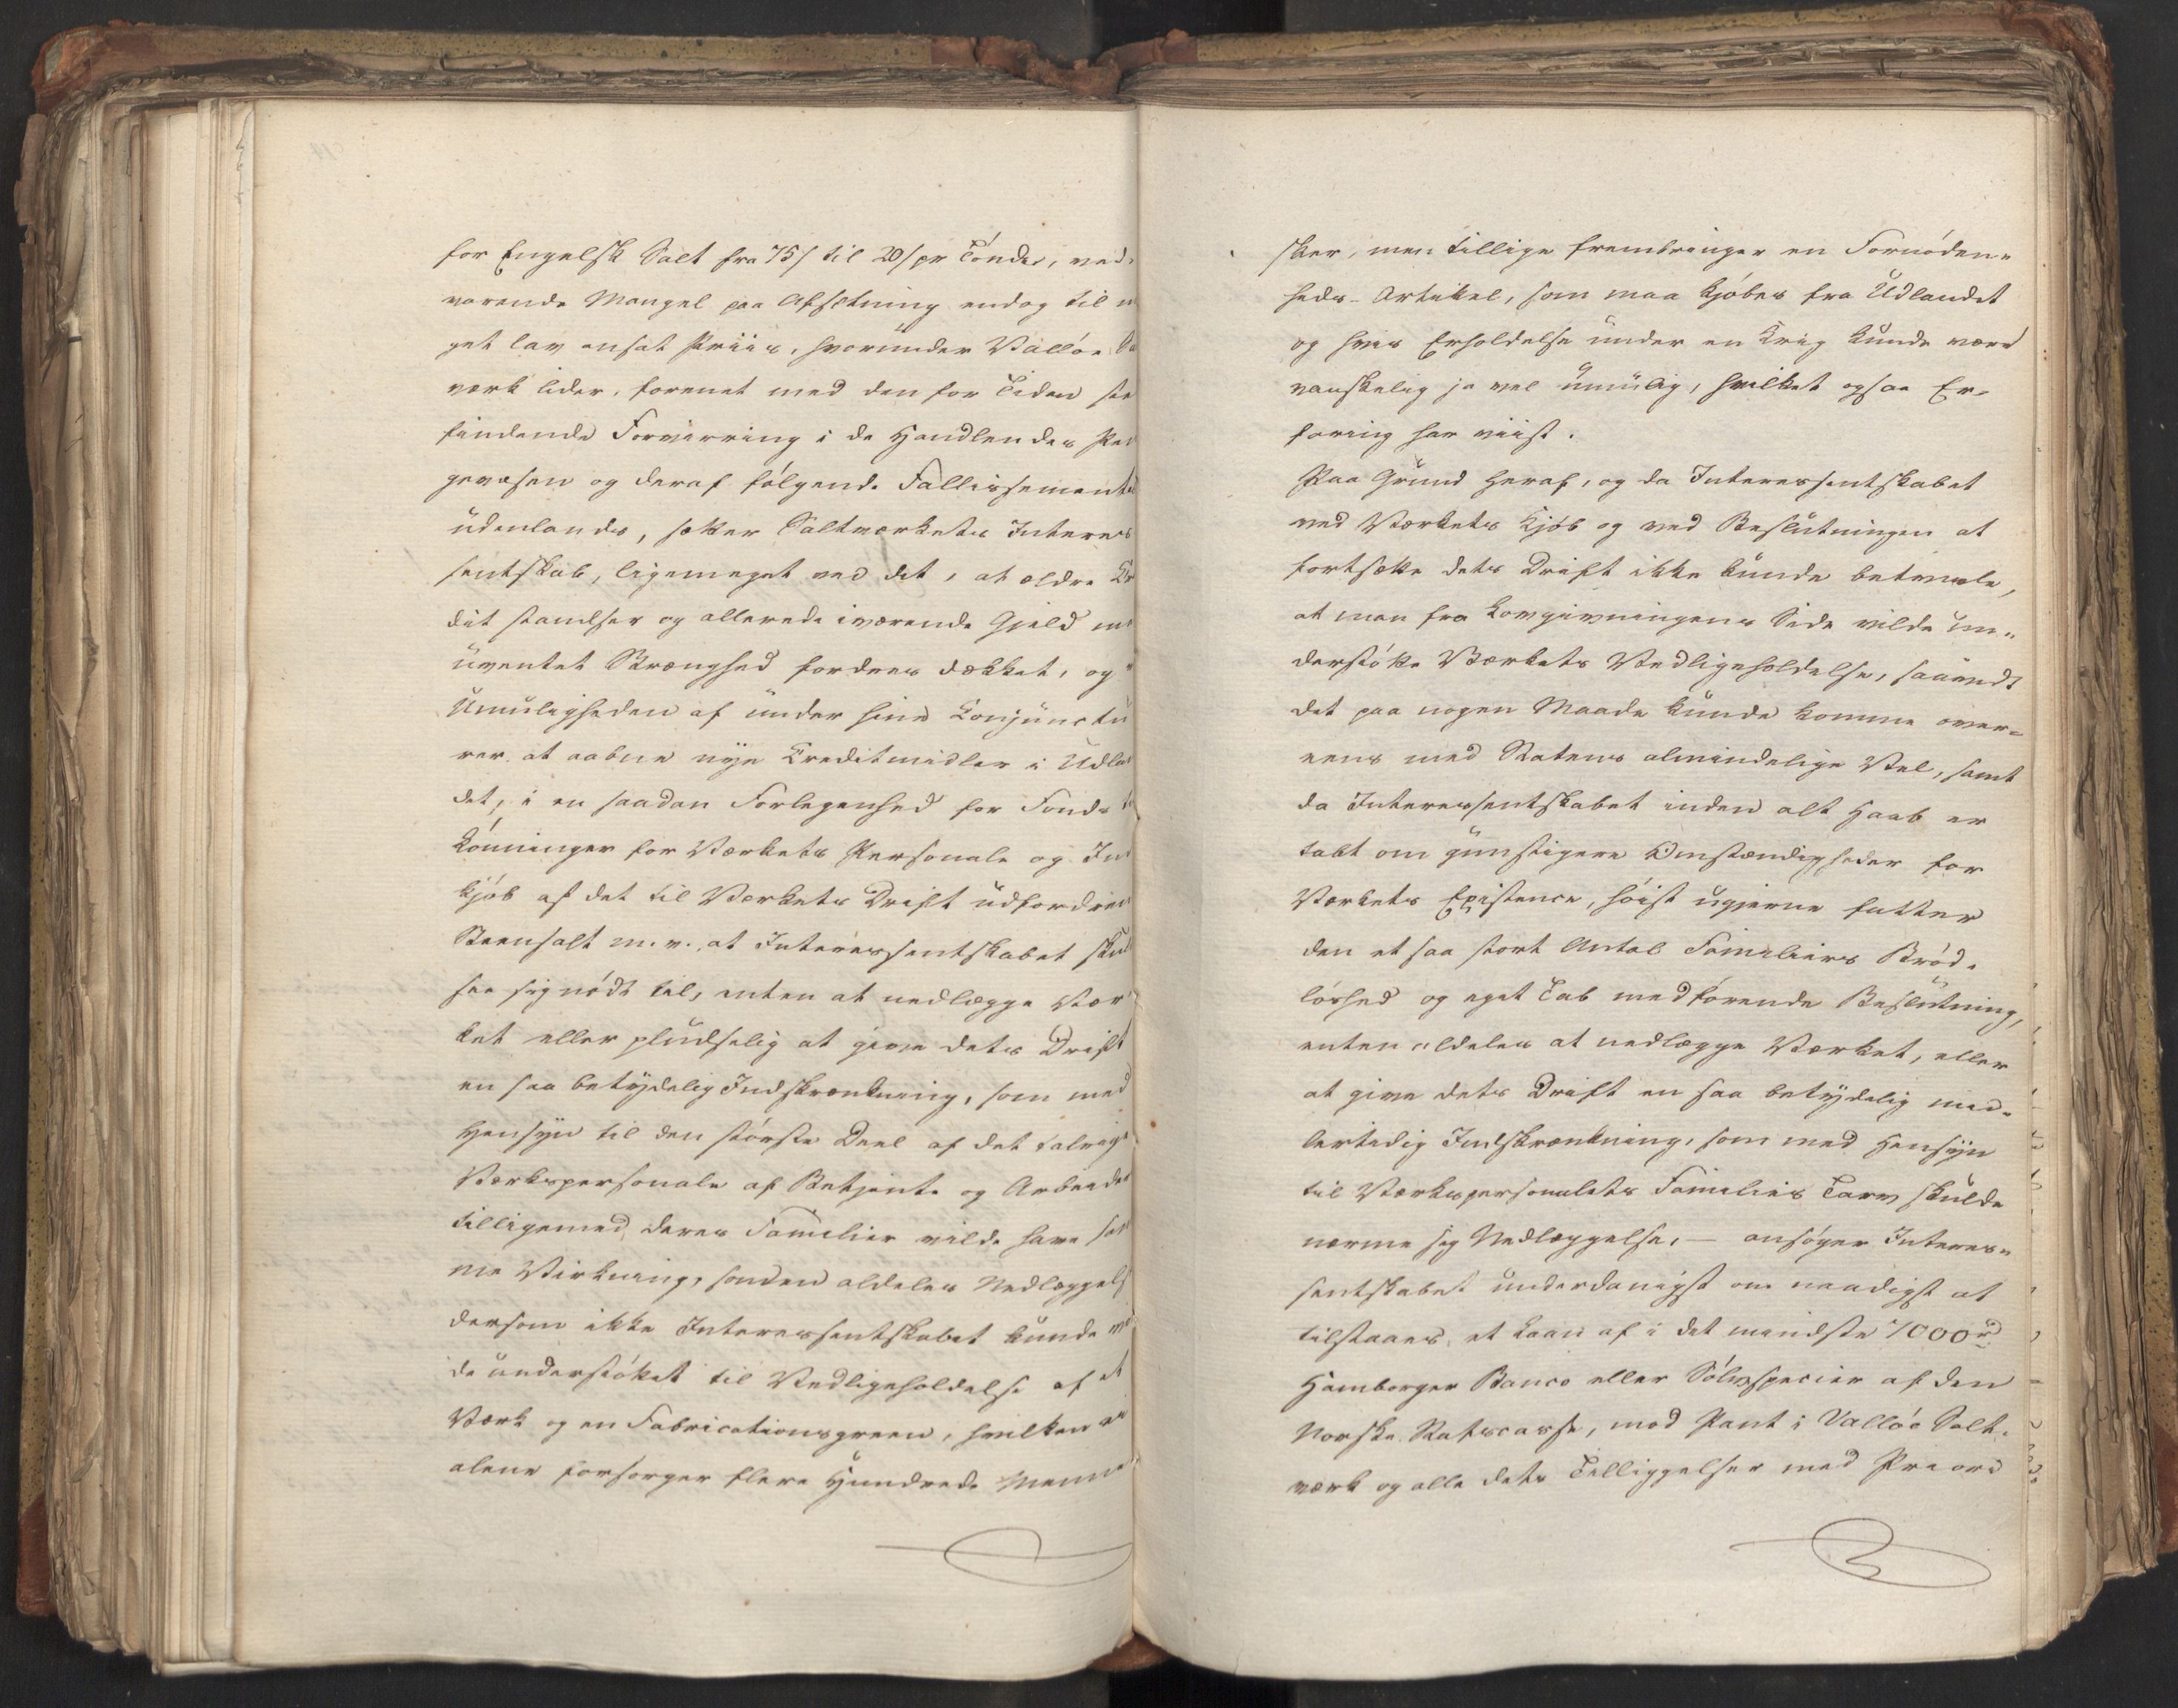 for Engelsk Salt fra 75/ til 20/ pr Tönde, ved-
varende Mangel paa Afsetning endog til
get lav ansat Priis, hvorunder Vallöe
værk lider, forenet med den for Tiden
findende Forvirring i de Handlendes
gevæsen og deraf fölgende Fallissementer
udenlands, sætter Saltværkets Interes
sentskab, ligemeget ved det, at ældre
dit standser og allerede iværende Gjeld
uventet Strænghed fordres dækket, og
Umuligheden af under hine Conjunctu
rer at aabne nye Creditmidler i Udlan
det, i en saadan Forlegenhed for Fonds
Lönninger for Værkets Personale og Ind
kjöb af det til Værkets Drift udfordrende
Steensalt m. v. at Interessentskabet
saa sig nödt til, enten at nedlægge Vær
ket eller pludselig at give dets Drift
en saa betydelig Indskrænkning, som med
Hensyn til den störste Deel af det talrige
Værkspersonale af Betjente og Arbeider
tilligemed deres Familier vilde have
me Virkning, som den aldeles Nedlæggelse
dersom ikke Interessentskabet kunde
de understöttet til Vedligeholdelse af et
Værk og en Fabricationsgreen, hvilken
alene forsörger flere Hundrede Menne
sker, men tillige frembringer en Fornöden-
heds-Artikel, som maa kjöbes fra Udlandet
og hvis Erholdelse under en Krig kunde være
vanskelig ja vel umulig, hvilket ogsaa Er-
faring har viist.
Paa Grund heraf, og da Interessentskabet
ved Værkets Kjöb og ved Beslutningen at
fortsætte dets Drift ikke kunde betvivle,
at man fra Lovgivningens Side vilde un-
derstötte Værkets Vedligeholdelse, saavidt
det paa nogen Maade kunde komme over-
eens med Statens almindelige Vel, samt
da Interessentskabet inden alt Haab er
tabt om gunstigere Omstændigheder for
Værkets Existence, höist ugjerne fatter
den et saa stort Antal Familiers Bröd-
löshed og eget Tab medförende Beslutning,
enten aldeles at nedlægge Værket, eller
at give dets Drift en saa betydelig mid-
lertidig Indskrænkning, som med Hensyn
til Værkspersonalets Familiers Tarv skulde
nærme sig Nedlæggelse, — ansöger Interes-
sentskabet underdanigst om naadigst at
tilstaaes et Laan af i det mindste 7000 rd
Hamborger Banco eller Sölvspecier af den
Norske Statscasse, mod Pant i Vallöe Salt-
værk og alle dets Tilliggelser med Priori